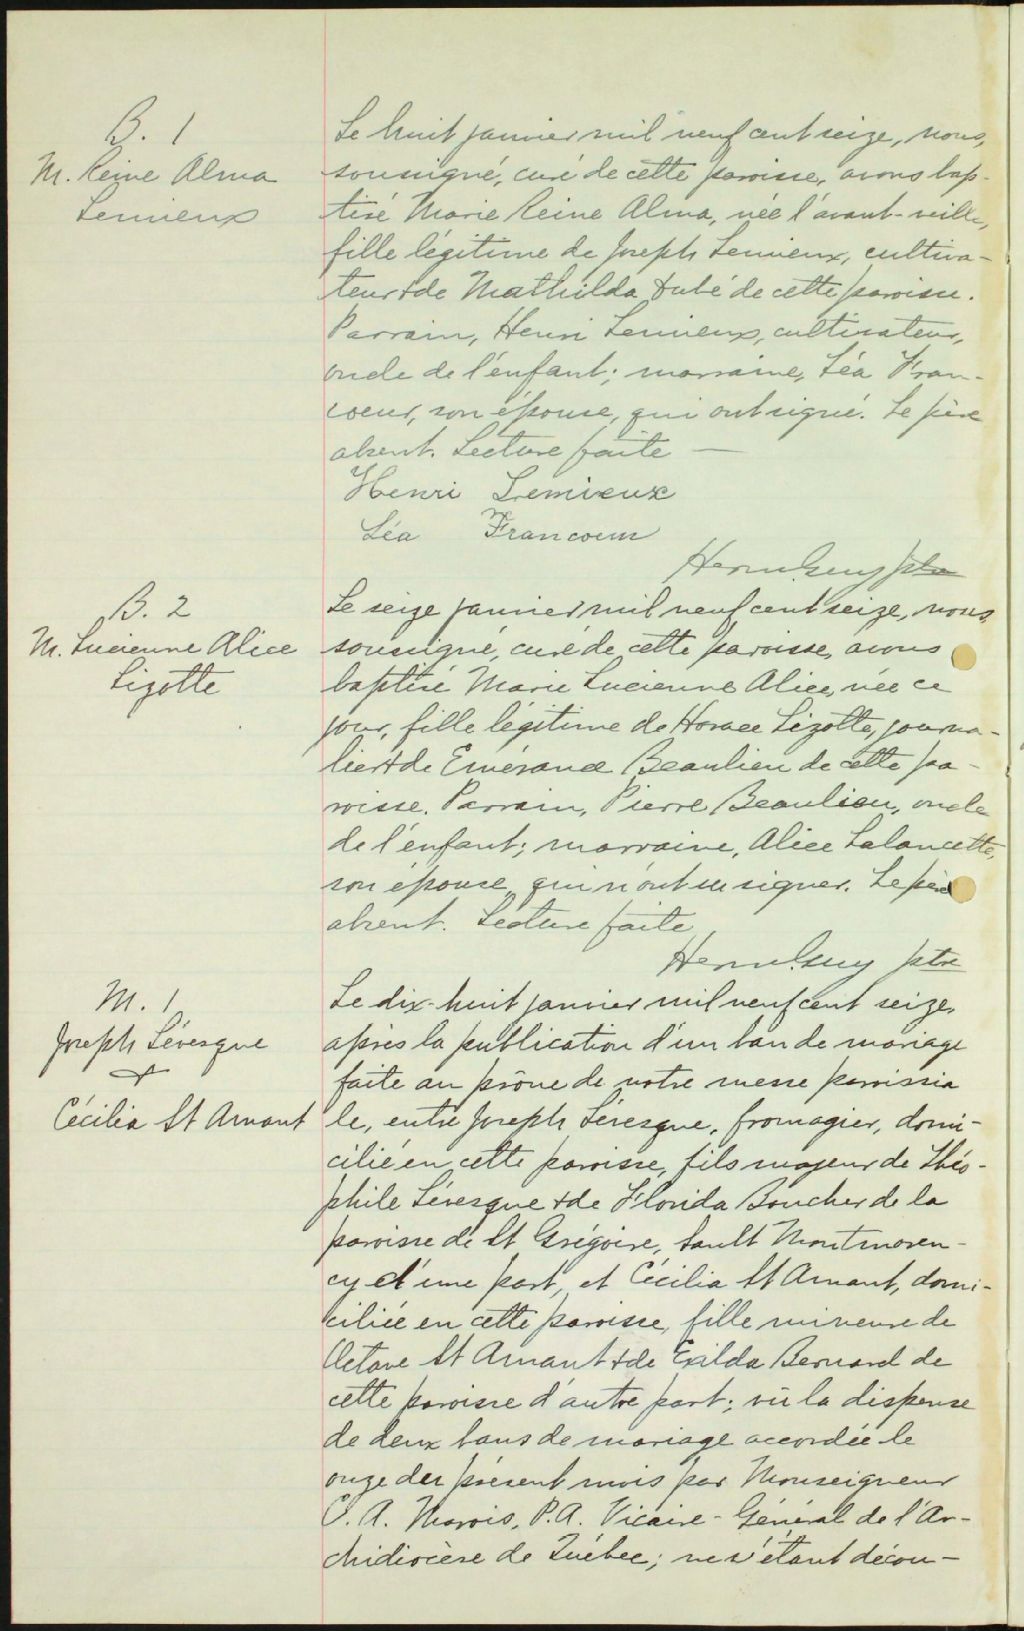 B. 1
M. Reine Alma
Lemieux
Le huit janvier mil neuf cent seize, nous,
soussigné, curé de cette paroisse, avons bap-
tisé Marie Reine Alma, née l'avant-veille,
fille légitime de Joseph Lemieux, cultiva-
teur & de Mathilda Dubé de cette paroisse.
Parrain, Henri Lemieux, cultivateur,
oncle de l'enfant; marraine, Léa Fran-
coeur, son épouse, qui ont signé. Le père
absent. Lecture faite —
Henri Lemieux
Léa Francoeur
Guy ptre
B. 2
M. Lucienne Alice
Lizotte
Le seize janvier mil neuf cent seize, nous,
soussigné, curé de cette paroisse, avons
baptisé Marie Lucienne Alice, née ce
jour, fille légitime de Horace Lizotte, journa-
lier & de Emérance Beaulieu de cette pa-
roisse. Parrain, Pierre Beaulieu, oncle
de l'enfant; marraine, Alice Lalancette,
son épouse, qui n'ont su signer. Le père
absent. Lecture faite
Guy ptre
M. 1
Joseph Lévesque
&
Cécilia St Amant
Le dix-huit janvier mil neuf cent seize,
après la publication d'un ban de mariage
faite au prône de notre messe paroissia
le, entre Joseph Lévesque, fromagier, domi-
cilié en cette paroisse, fils majeur de Théo-
phile Lévesque & de Florida Boucher de la
paroisse de St Grégoire, Sault Montmoren-
cy d'une part, et Cécilia St Amant, domi-
ciliée en cette paroisse, fille mineure de
Octave St Amant & de Exilda Bernard de
cette paroisse d'autre part; vû la dispense
de deux bans de mariage accordée le
onze du présent mois par Monseigneur
C. A. Marois, P.A. Vicaire-Général de l'Ar-
chidiocèse de Québec; ne s'étant décou-